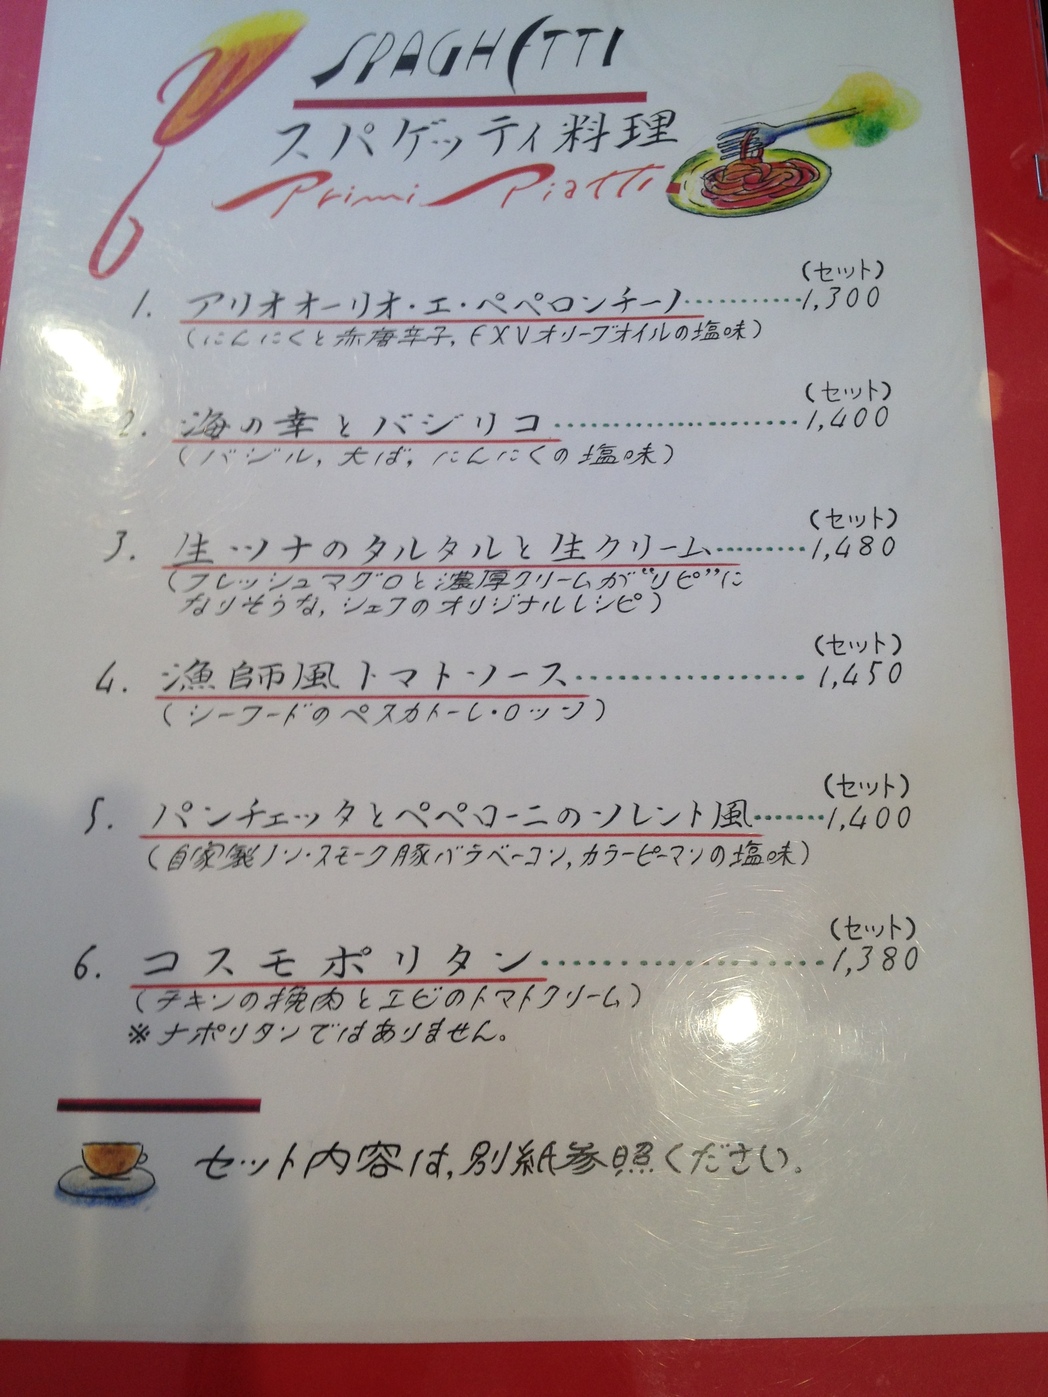 SPAGHETTI
スパゲッティ料理
Primi Piatti
(セット)
1. アリオオーリオ・エ・ペペロンチーノ………1,300
(にんにくと赤唐辛子, EXVオリーブオイルの塩味)
(セット)
2. 海の幸とバジリコ………1,400
(バジル, 大ば, にんにくの塩味)
(セット)
3. 生ツナのタルタルと生クリーム………1,480
(フレッシュマグロと濃厚クリームが"リピ"に
なりそうな, シェフのオリジナルレシピ)
(セット)
4. 漁師風トマトソース………1,450
(シーフードのペスカトーレ・ロッソ)
(セット)
5. パンチェッタとペペローニのソレント風………1,400
(自家製ノン・スモーク豚バラベーコン, カラーピーマンの塩味)
(セット)
6. コスモポリタン………1,380
(チキンの挽肉とエビのトマトクリーム)
※ナポリタンではありません。
セット内容は, 別紙参照ください。